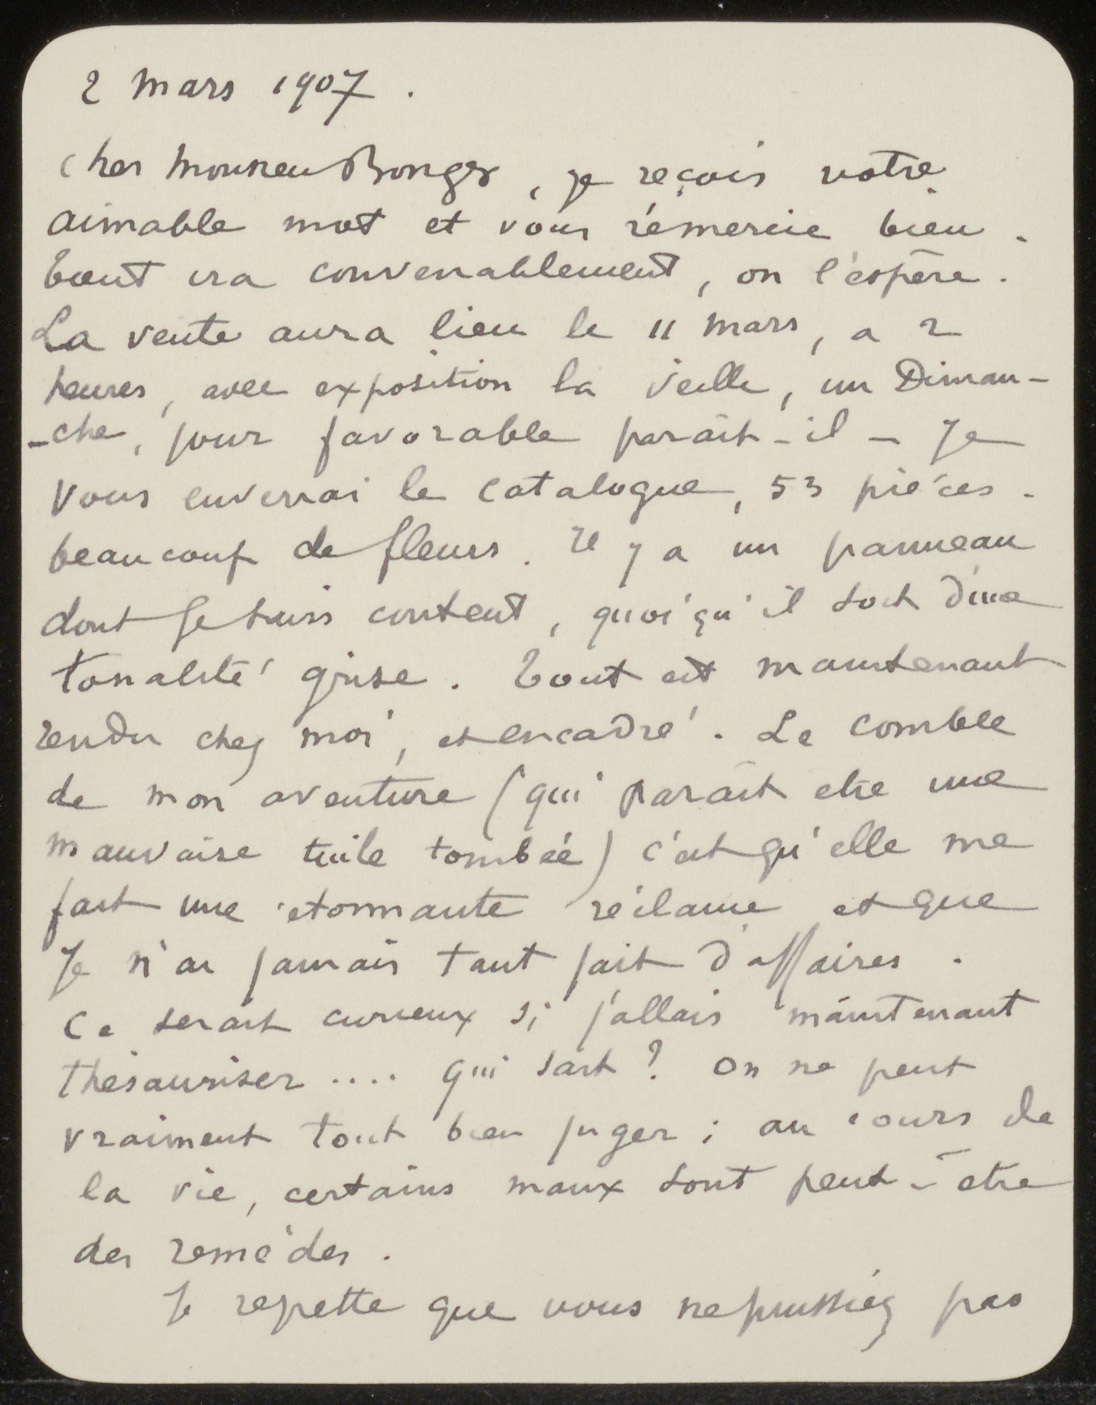 2 Mars 1907.
Cher Monsieur Bonger, je reçois votre
aimable mot et vous remercie bien.
Tout ira convenablement, on l'espère.
La vente aura lieu le 11 Mars, a 2
heures, avec exposition la veille, un Diman-
-che, jour favorable parait-il - Je
vous enverrai le catalogue, 53 pièces.
beaucoup de fleurs. Il y a un panneau
dont je suis content, quoi qu'il soit d'une
tonalité grise. Tout est maintenant
rendu chez moi, et encadré. Le comble
de mon aventure (qui parait etre une
mauvaise tuile tombée) c'est qu'elle me
fait une etonnante réclame et que
Je n'ai jamais tant fait d'affaires.
Ce serait curieux si j'allais maintenant
thésauriser .... qui sait ? On ne peut
vraiment tout bien juger ; au cours de
la vie, certains maux sont peut-être
des remèdes.
Je regrette que vous ne puissiez pas